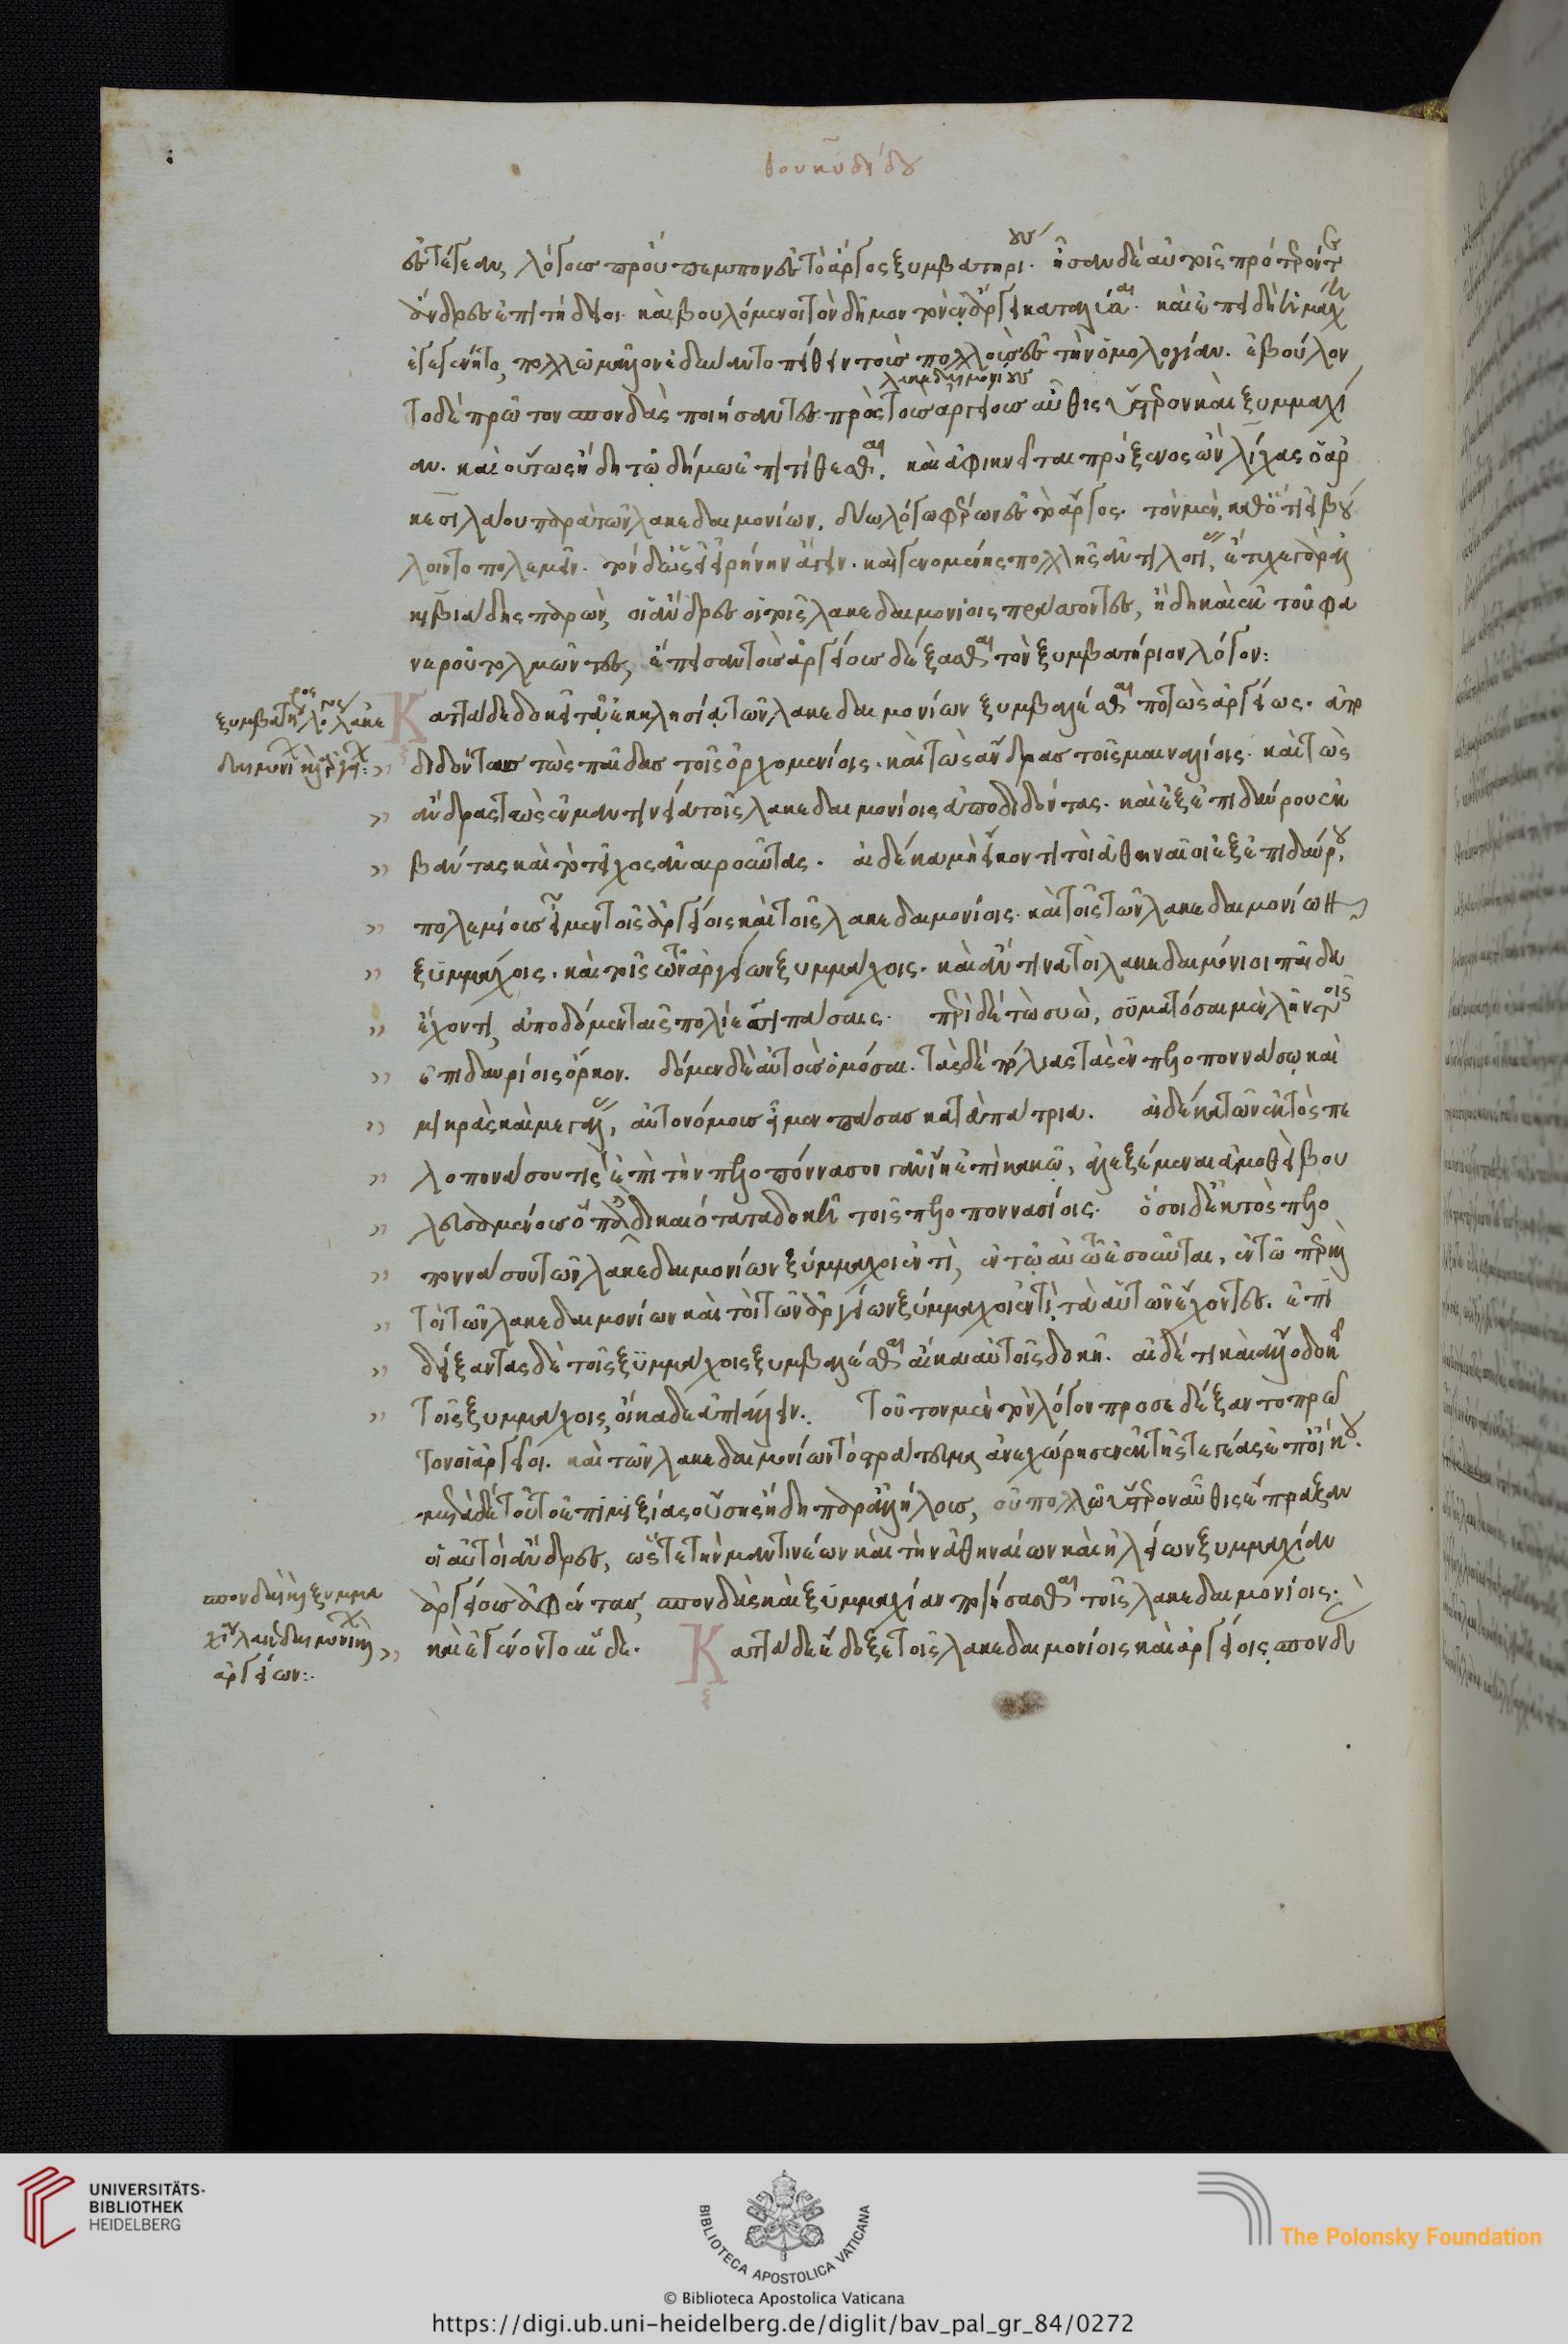 θουκυδίδου
ἐς τεγέαν, λόγους προύπεμπον ἐς τὸ ἄργος ξυμβατηρίους. ἦσαν δὲ αὐτοῖς πρότερόν τε
ἄνδρες ἐπιτήδειοι καὶ βουλόμενοι τὸν δῆμον τὸν ἐν ἄργει καταλῦσαι. καὶ ἐπειδὴ ἡ μάχη
ἐγεγένητο, πολλῷ μᾶλλον ἐδύναντο πείθειν τοὺς πολλοὺς ἐς τὴν ὁμολογίαν. ἐβούλον
λακεδαιμονίους
το δὲ πρῶτον σπονδὰς ποιήσαντες πρὸς τοὺς ἀργείους αὖθις ὕστερον καὶ ξυμμαχί
αν. καὶ οὕτως ἤδη τῷ δήμῳ ἐπιτίθεσθαι. καὶ ἀφικνεῖται πρόξενος ὢν λίχας ὁ ἀρ
κεσιλάου παρὰ τῶν λακεδαιμονίων, δύω λόγω φέρων ἐς τὸ ἄργος. τὸν μὲν, καθότι εἰ βού
λοιντο πολεμεῖν. τὸν δ' ὡς εἰ εἰρήνην ἄγειν. καὶ γενομένης πολλῆς ἀντιλογίας, ἔτυχε γὰρ ἀλ
κιβιάδης παρών, οἱ ἄνδρες οἱ τοῖς λακεδαιμονίοις πράσσοντες, ἤδη καὶ ἐκ τοῦ φα
νεροῦ τολμῶντες, ἔπεισαν τοὺς ἀργείους δέξασθαι τὸν ξυμβατήριον λόγον:
Καττάδε δοκεῖ τᾷ ἐκκλησίᾳ τῶν λακεδαιμονίων ξυμβαλέσθαι ποττὼς ἀργείως. ἀπο
διδόντας τὼς παῖδας τοῖς ὀρχομενίοις. καὶ τὼς ἄνδρας τοῖς μαιναλίοις. καὶ τὼς
ἄνδρας τὼς ἐν μαντινείᾳ τοῖς λακεδαιμονίοις ἀποδιδόντας. καὶ ἐξ ἐπιδαύρου ἐκ
βάντας καὶ τὸ τεῖχος ἀναιροῦντας. αἱ δέ κα μὴ εἴκοντι τοὶ ἀθηναῖοι ἐξ ἐπιδαύρου,
πολεμίους εἶμεν τοῖς ἀργείοις καὶ τοῖς λακεδαιμονίοις. καὶ τοῖς τῶν λακεδαιμονίων
ξυμμάχοις. καὶ τοῖς τῶν ἀργείων ξυμμάχοις. καὶ αἴ τινα τοὶ λακεδαιμόνιοι παῖδα
ἔχοντι, ἀποδόμεν ταῖς πολίεσσι πάσαις. περὶ δὲ τῶ σιῶ, σύματος αἰ μὲν λῆν τοῖς
ἐπιδαυρίοις ὅρκον. δόμεν δὲ αὐτοὺς ὀμόσαι. τὰς δὲ πόλιας τὰς ἐν πελοποννάσῳ καὶ
μικρὰς καὶ μεγάλας, αὐτονόμους εἶμεν πάσας καττὰ πάτρια. αἰ δέ κα τῶν ἐκτὸς πε
λοποννάσου τις ἐπὶ τὴν πελοπόννασον γᾶν ἴῃ ἐπὶ κακῷ, ἀλεξέμεναι ἁμοθεὶ βου
λευσαμένους ὅπᾳ δικαιότατα δοκεῖ τοῖς πελοποννασίοις. ὅσοι δ' ἐκτὸς πελο
ποννάσου τῶν λακεδαιμονίων ξύμμαχοι ἐντὶ, ἐν τῷ αὐτῷ ἐσοῦνται, ἐν τῷ περ καὶ
τοὶ τῶν λακεδαιμονίων καὶ τοὶ τῶν ἀργείων ξύμμαχοι ἐντὶ, τὰ αὐτῶν ἔχοντες. ἐπι
δείξαντας δὲ τοῖς ξυμμάχοις ξυμβαλέσθαι αἴ κα αὐτοῖς δοκῇ. αἰ δέ τι καὶ ἄλλο δοκῇ
τοῖς ξυμμάχοις, οἴκαδε ἀπιάλλειν. Τοῦτον μὲν τὸν λόγον προσεδέξαντο πρῶ
τον οἱ ἀργεῖοι. καὶ τῶν λακεδαιμονίων τὸ στράτευμα ἀνεχώρησεν ἐκ τῆς τεγέας ἐπ' οἴκου.
μετὰ δὲ τοῦτο ἐπιμιξίας οὔσης ἤδη παρ' ἀλλήλους, οὐ πολλῷ ὕστερον αὖθις ἔπραξαν
οἱ αὐτοὶ ἄνδρες, ὥστε τὴν μαντινέων καὶ τὴν ἀθηναίων καὶ ἠλείων ξυμμαχίαν
ἀργείους ἀφέντας, σπονδὰς καὶ ξυμμαχίαν ποιήσασθαι τοῖς λακεδαιμονίοις.
καὶ ἐγένοντο αἵδε. Καττάδε ἔδοξε τοῖς λακεδαιμονίοις καὶ ἀργείοις, σπονδὰ
ξυμβατήριος λόγος λακε
δαιμονίων καὶ ἀργείων:
σπονδαὶ καὶ ξυμμα
χίαι λακεδαιμονίων καὶ
ἀργείων:
UNIVERSITÄTS-
BIBLIOTHEK
HEIDELBERG
BIBLIOTECA APOSTOLICA VATICANA
The Polonsky Foundation
© Biblioteca Apostolica Vaticana
https://digi.ub.uni-heidelberg.de/diglit/bav_pal_gr_84/0272